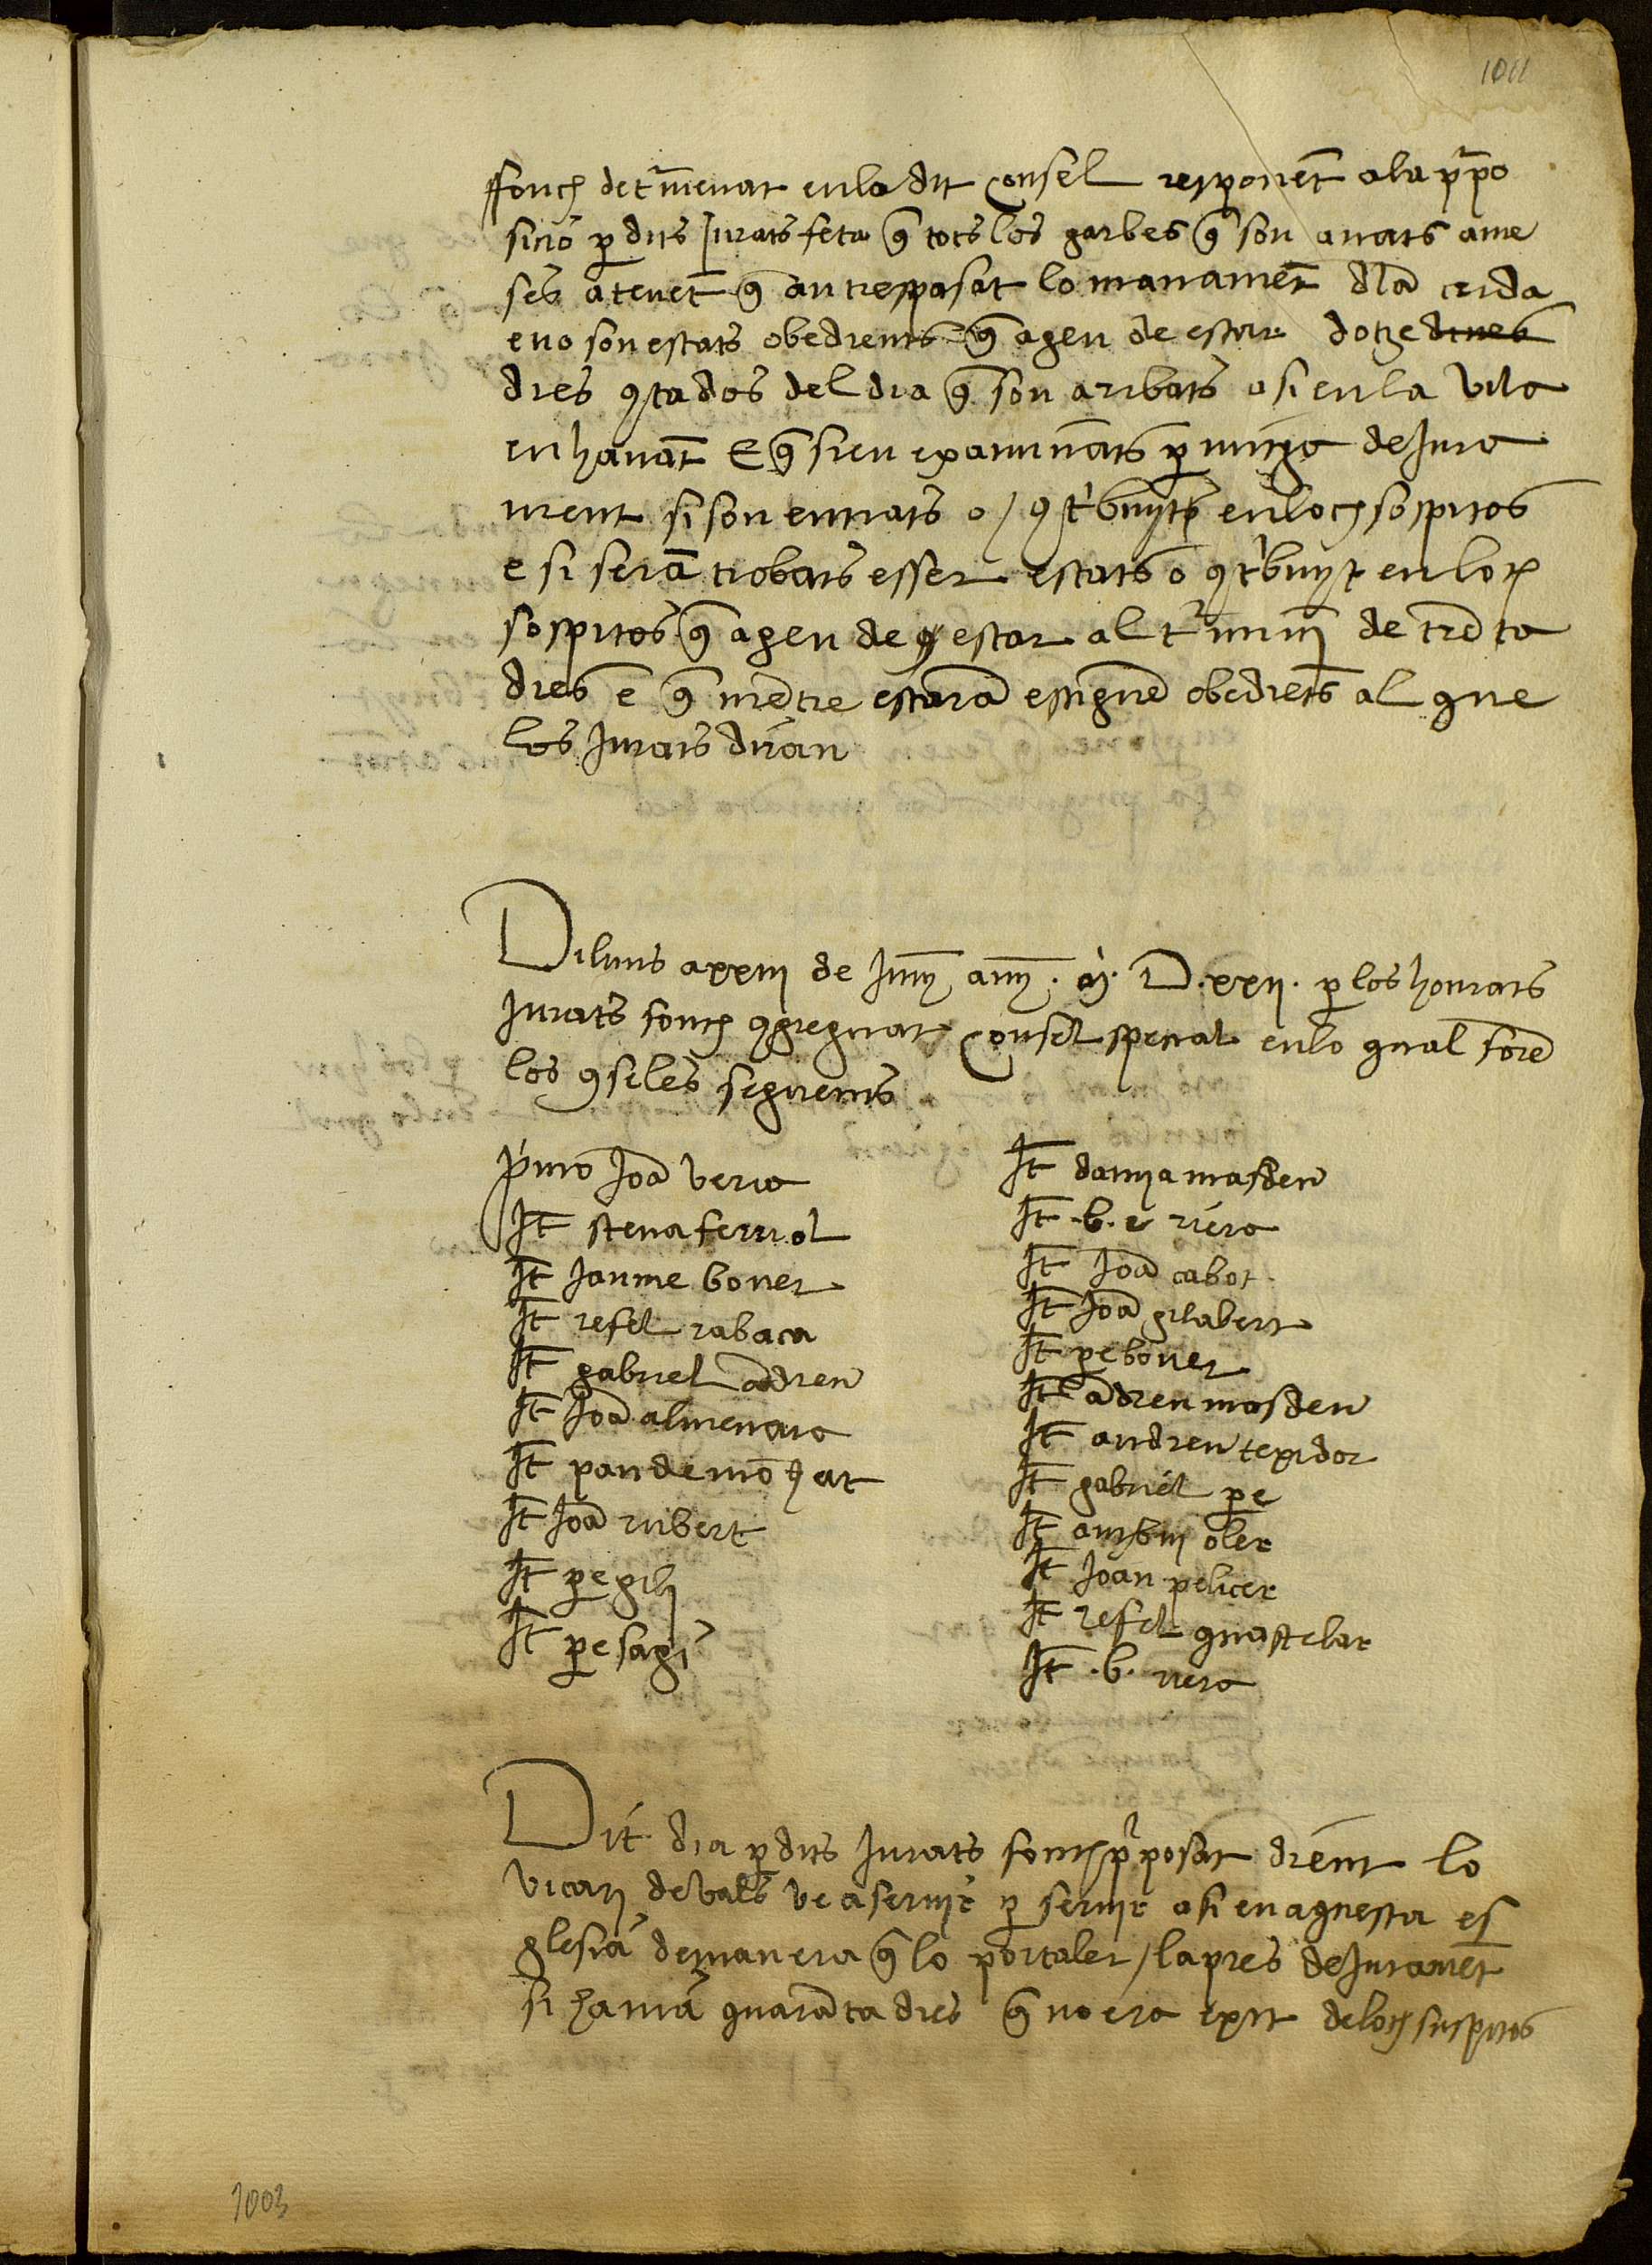 1011
ffonch det̃menat en lo dit Consel responẽt a la p̃po
sicio p̱ dits Jurats feta q̃ tots los garbes q̃ son anats a me
ses atenẽt q̃ an trespasat lo manamẽt dla crida
e no son estats obedients q̃ agen de estar dotze dines
dies 9tados del dia q̃ son aribats asi en la vila
en havãt E q̃ sien examinats p̱ migã de Jura
ment si son entrats o / 9t̃buyts en loch sospitos
e si serã trobats esser estats o 9t̃buyt en loch
sospitos q̃ agen de estar al t̃minj de trẽta
dies e q̃ mẽtre estarã estiguẽ obediẽts al que
los Jurats diran
Diluns a xxiij de Juny any . M . D . xxij . p̱ los honrats
Jurats fonch 9gregnat Consel special en lo qual forẽ
los 9seles seguents
p̃mo Joã veria
It̃ steva ferriol
It̃ Jaume boner
It̃ refel rabaca
It̃ gabriel ãdreu
It̃ Joã almenara
It̃ pau de mõtjat
It̃ Joã rubert
It̃ p̱e gilj
It̃ p̱e sagi
It̃ damia masdeu
It̃ . b . e riera
It̃ Joã cabot
It̃ Joã gilabert
It̃ p̱e boner
It̃ ãdreu masdeu
It̃ andreu texidor
It̃ gabriel p̱e
It̃ oler
It̃ Joan pelicer
It̃ refel guastelar
It̃ . b . riera
Dit dia p̱ dits Jurats fonch p̃posat dient lo
vicarj de vals ve a servir p̱ servir asi en aquesta es
glesia de manera q̃ lo portaler / la pres de Juramẽt
si havia quarãta dies q̃ no era exit de loch suspitos
1003